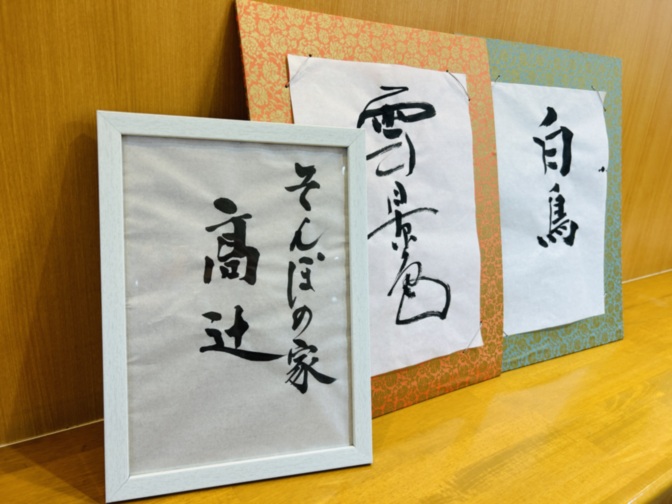 そんぽの家
高辻
雪景色
白鳥